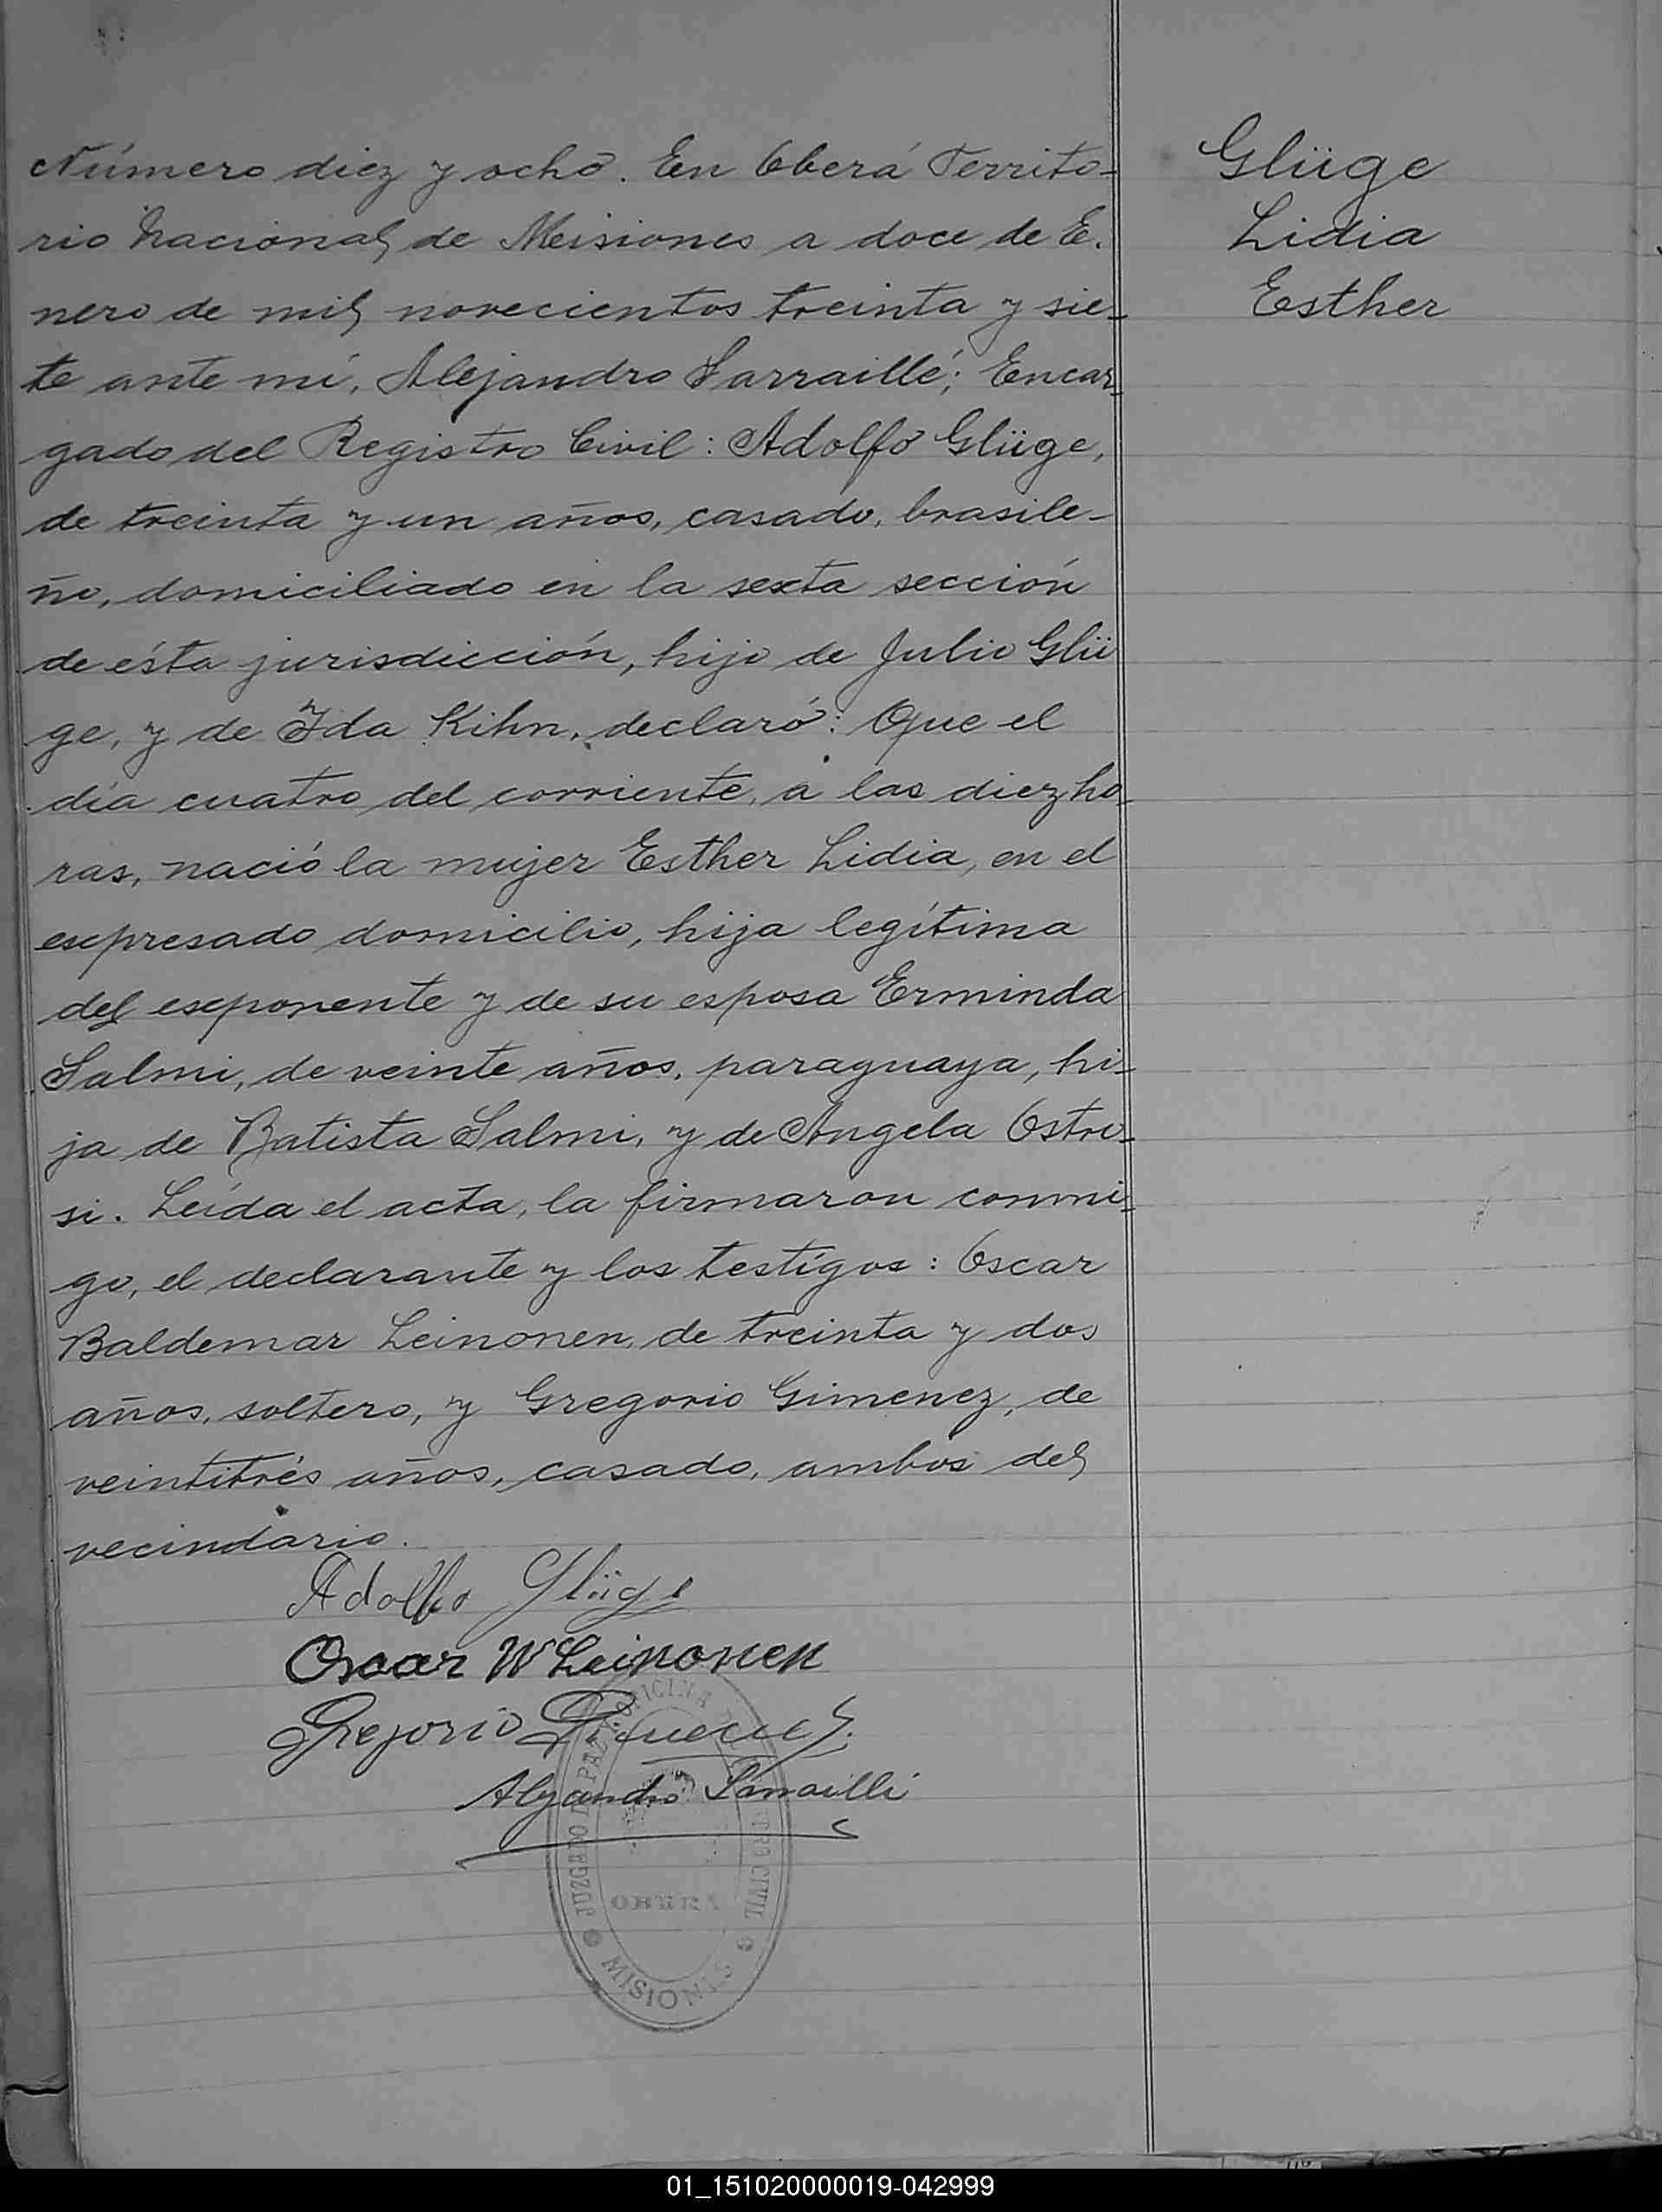 Número diez y ocho. En Oberá Territo-
rio Nacional de Misiones a doce de E.
nero de mil novecientos treinta y sie-
te ante mí, Alejandro Sarraillé; Encar-
gado del Registro Civil: Adolfo Glüge,
de treinta y un años, casado, brasile-
ño, domiciliado en la sexta sección
de ésta jurisdicción, hijo de Julio Glü
ge, y de Ida Kihn, declaró: Que el
día cuatro del corriente, a las diez ho-
ras, nació la mujer Esther Lidia, en el
expresado domicilio, hija legítima
del exponente y de su esposa Erminda
Salmi, de veinte años, paraguaya, hi-
ja de Batista Salmi, y de Angela Ostro-
si. Leída el acta, la firmaron conmi-
go, el declarante y los testígos: Oscar
Baldemar Leinonen, de treinta y dos
años, soltero, y Gregorio Gimenez, de
veintitrés años, casado, ambos del
vecindario.
Adolfo Glüge
Oscar W Leinonen
Gregorio Gimenez
Alejandro Sarraillé
JUZGADO DE PAZ OFICINA CIVIL
OBERA
MISIONES
Glüge
Lidia
Esther
01_151020000019-042999